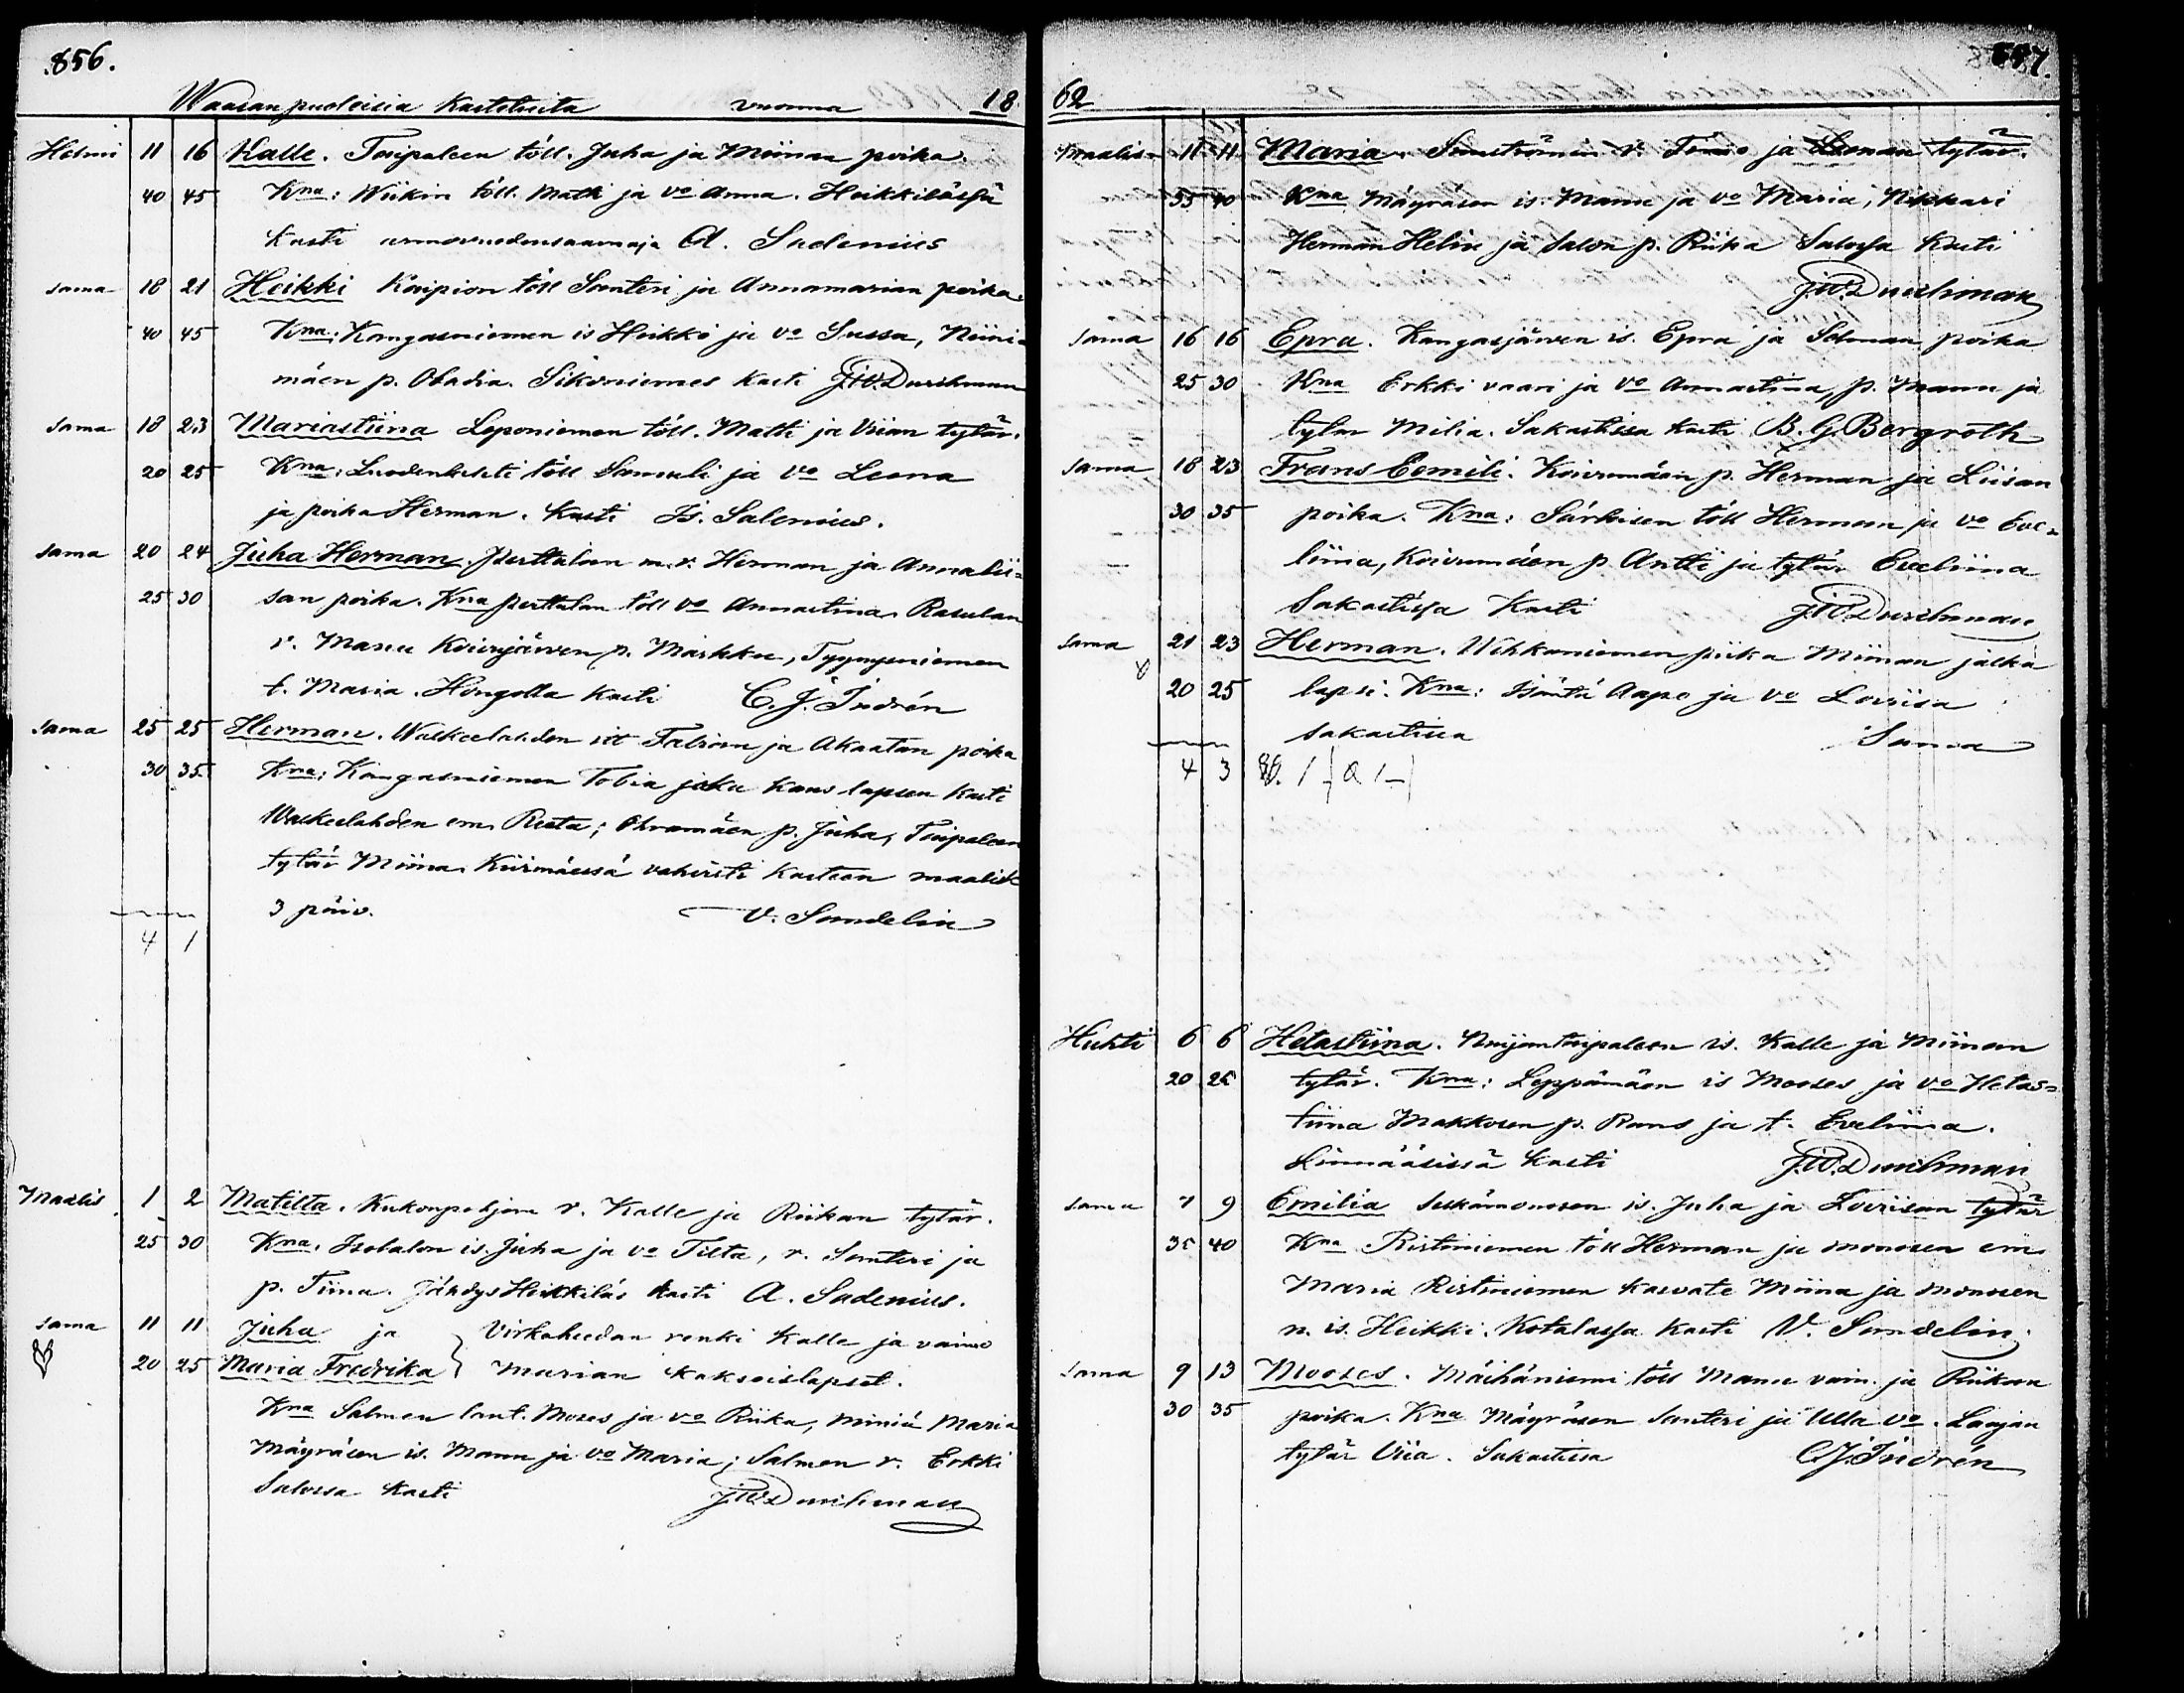 856.
Waasan puoleisia kastetuita vuonna 18
Helmi 11 16 Kalle. Taipaleen töll. Juha ja Miinan poika.
40 45 Kna: Wiikin töll. Matti ja vo Anna. Heikkilässä
kasti armovuodensaarnaja A. Sadenius
sama 18 21 Heikki Kaipion töll Santeri ja Annamarian poika.
40 45 Kna: Kangasniemen is Heikki ja vo Sussa, Niini-
mäen p. Obadia. Sikoniemes kasti J.W. Durchman
sama 18 23 Mariastiina Leponiemen töll. Matti ja Viian tytär.
20 25 Kna: töll Samuli ja vo Leena
ja poika Herman. kasti Is. Salenius.
sama 20 24 Juha Herman. Perttulan m.v. Herman ja Annalii-
25 30 san poika. Kna Perttulan töll vo Annastina. Rasulan
r. Manu Koivujärven p. Markku, Tyynyniemen
t. Maria. Hongolla kasti C.J. Indrén
sama 25 25 Herman. Walkeelahden Fabian ja Akaatan poika
30 35 Kna: Kangasniemen Tobia joka kans lapsen kasti
Walkeelahden em. Reeta; Ohramäen p. Juha, Taipaleen
tytär Miina. Kiirmäessä vahvisti kasteen maalisk
3 päiv. V. Sandelin
4 1
Maalis 1 2 Matilta. Kukonpohjan r. Kalle ja Riikan tytär.
25 30 Kna. Isotalon is. Juha ja vo Tilta, r. Santeri ja
p. Tiina. Jähdys Heikkiläs kasti A. Sadenius.
sama 11 11 Juha ja } Virkaheedan renki Kalle ja vaimo
20 25 Maria Fredrika } Marian kaksoislapset.
Kna Salmen lant. Moses ja vo Riika, miniä Maria
Mäyräsen is. Manu ja vo Maria; Salmen r. Erkki
Salossa kasti J.W. Durchman
62 857.
Maalis 11 11 Maria. r. ja Leenan tytär.
35 40 Kna Mäyräsen is. Manu ja vo Maria, Nikkari
Herman Helin ja Salon p. Riika Salossa kasti
J.W. Durchman
sama 16 16 Epra. Kangasjärven is. Epra ja Selman poika
25 30 Kna Erkki vaari ja vo Annastina, p. Manu ja
tytär Milia. Sakastissa kasti B. G. Bergroth
sama 18 23 Frans Eemili. Koivumäen p. Herman ja Liisan
30 35 poika. Kna: Särkisen töll Herman ja vo Eve-
liina, Koivumäen p. Antti ja tytär Eveliina
Sakastissa kasti J.W. Durchman
sama 21 23 Herman. Wehkaniemen piika Miinan jalka
20 25 lapsi. Kna: Isäntä Aapo ja vo Loviisa
sakastissa Sama
4 3
Huhti 6 6 Hetastiina. Nuijantaipaleen is. Kalle ja Miinan
20 25 tytär. Kna: Leppämäen is Mooses ja vo Hetas-
tiina Makkosen p. Rans ja t. Eveliina.
Linnääsissä kasti J.W. Durchman
sama 7 9 Emilia is. Juha ja Loviisan tytär
35 40 Kna Ristiniemen töll Herman ja Monosen em.
Maria Ristiniemen kasvate Miina ja Monosen
n. is. Heikki. Kotalassa kasti V. Sandelin.
sama 9 13 Mooses. Mäihäniemi töll Manu vain. ja Riikan
30 35 poika. Kna Mäyräsen Santeri ja Ulla vo. Laajan
tytär Viia. Sakastissa C.J. Indrén